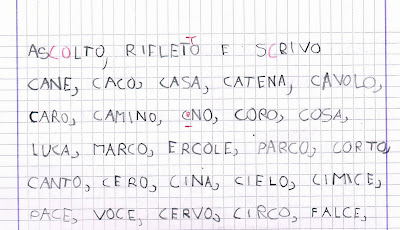 ASCOLTO, RIFLETTO E SCRIVO
CANE, CACO, CASA, CATENA, CAVOLO,
CARO, CAMINO, COPO, COSA,
LUCA, MARCO, ERCOLE, PARCO, CORTO,
CANTO, CERO, CINA, CIELO, CIMICE,
PACE, VOCE, CERVO, CIRCO, FALCE,